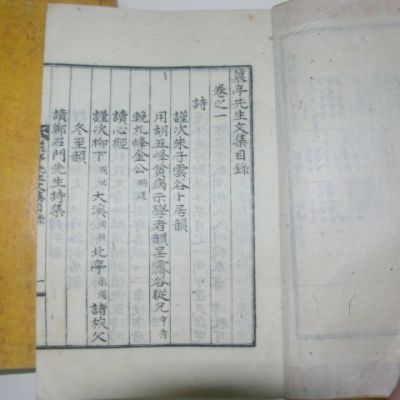 巢亭先生文集目錄
卷之一
詩
謹次朱子雲谷卜居韻
用胡五峰貧病示學者韻呈霽谷從兄
挽九峰金公
讀心經
謹次柳下 大溪 北亭 諸族父
冬至韻
讀鄭石門先生詩集